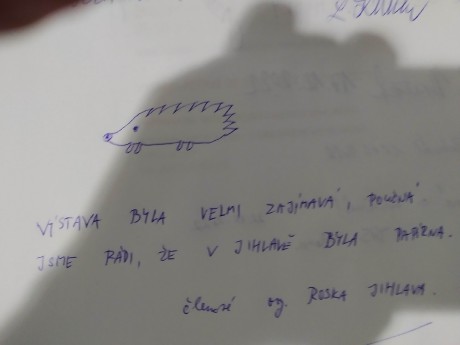 VÝSTAVA BYLA VELMI ZAJÍMAVÁ, POUČNÁ
JSME RÁDI, ŽE V JIHLAVĚ BYLA PAPÍRNA.
členové og. ROSKA JIHLAVA.